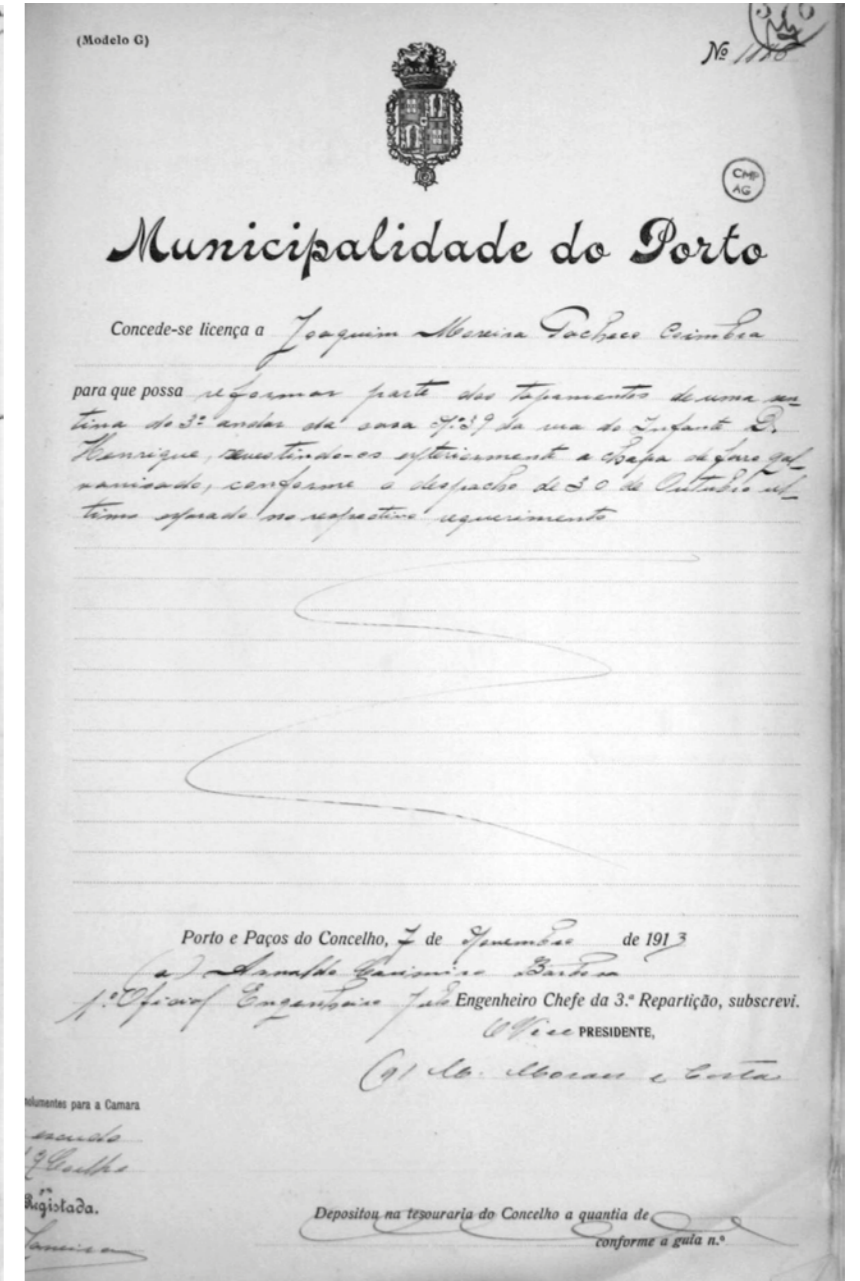 (Modelo G)
Nº
CMP
AG
Municipalidade do Porto
Concede-se licença a Joaquim Moreira Pacheco Coimbra
para que possa reformar parte dos tapamentos de uma sen-
tina do 3º andar da casa Nº 39 da rua do Infante D.
Henrique, revestindo-os exteriormente a chapa de ferro gal-
vanisado, conforme o despacho de 30 de Outubro ul-
timo exarado no respectivo requerimento
Porto e Paços do Concelho, 7 de Novembro de 1913
(a) Arnaldo Casimiro Barbosa
1º Oficial Engenheiro pelo Engenheiro Chefe da 3.ª Repartição, subscrevi.
O Vice PRESIDENTE,
(a) M. Moraes e Costa
olumentos para a Camara
escudo
Coelho
Registada.
Depositou na tesouraria do Concelho a quantia de
conforme a guia n.º